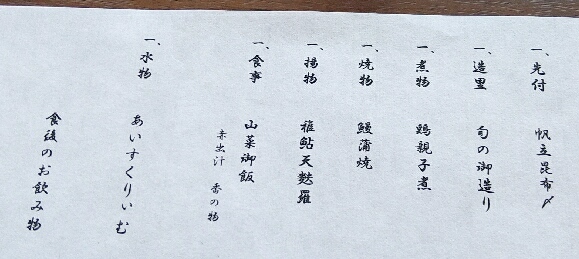 一、先付 帆立昆布〆
一、造里 旬の御造り
一、煮物 鶏親子煮
一、焼物 鰻蒲焼
一、揚物 稚鮎天麩羅
一、食事 山菜御飯
赤出汁 香の物
一、水物 あいすくりいむ
食後のお飲み物